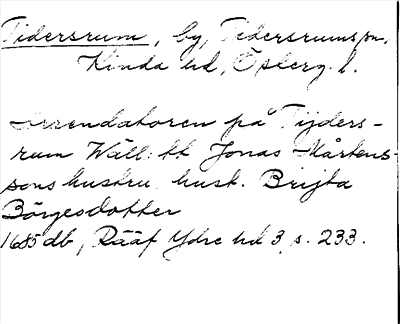 Tidersrum, by, Tidersrums sn,
Kinda hd, Österg. l.
Arrendatoren på Tijders-
rum Wäll: tt Jonas Mårtens-
sons hustru hust. Brijta
Börgesdotter
1685 db, Rääf Ydre hd 3 s. 233.